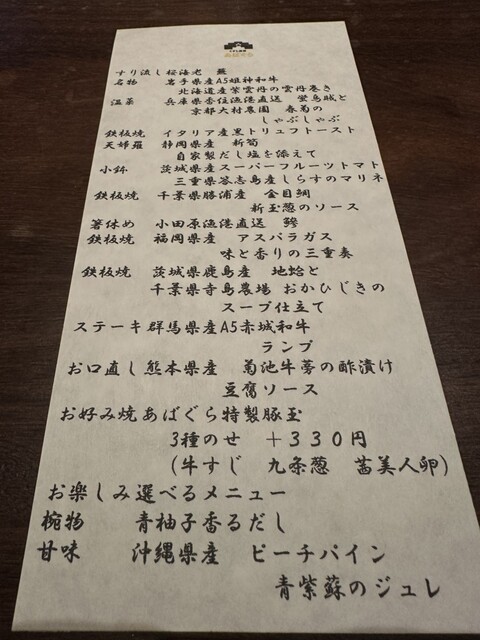 あばぐら
すり流し 桜海老 蕪
名物 岩手県産A5姫神和牛
北海道産紫雲丹の雲丹巻き
温菜 兵庫県香住漁港直送 蛍烏賊と
京都大村農園 春菊の
しゃぶしゃぶ
鉄板焼 イタリア産黒トリュフトースト
天婦羅 静岡県産 新筍
自家製だし塩を添えて
小鉢 茨城県産スーパーフルーツトマト
三重県答志島産しらすのマリネ
鉄板焼 千葉県勝浦産 金目鯛
新玉葱のソース
箸休め 小田原漁港直送 鯵
鉄板焼 福岡県産 アスパラガス
味と香りの三重奏
鉄板焼 茨城県鹿島産 地蛤と
千葉県寺島農場 おかひじきの
スープ仕立て
ステーキ 群馬県産A5赤城和牛
ランプ
お口直し 熊本県産 菊池牛蒡の酢漬け
豆腐ソース
お好み焼 あばぐら特製豚玉
3種のせ +330円
(牛すじ 九条葱 茜美人卵)
お楽しみ選べるメニュー
椀物 青柚子香るだし
甘味 沖縄県産 ピーチパイン
青紫蘇のジュレ